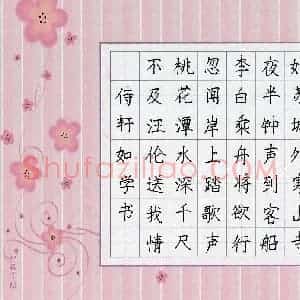 姑苏城外寒山寺
夜半钟声到客船
李白乘舟将欲行
忽闻岸上踏歌声
桃花潭水深千尺
不及汪伦送我情
侍轩如学书
Shufaziliao.com